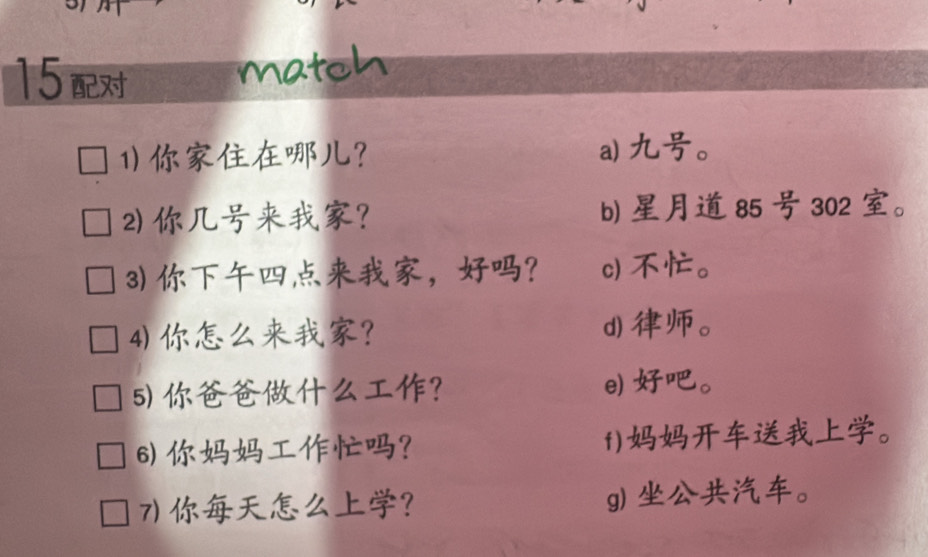 15 配对 match
□ 1) 你家住在哪儿? a) 九号。
□ 2) 你几号来我家? b) 星月道 85 号 302 室。
□ 3) 你下午四点来我家，好吗? c) 不忙。
□ 4) 你怎么来我家? d) 律师。
□ 5) 你爸爸做什么工作? e) 好吧。
□ 6) 你妈妈工作忙吗? f) 妈妈开车送我上学。
□ 7) 你每天怎么上学? g) 坐公共汽车。